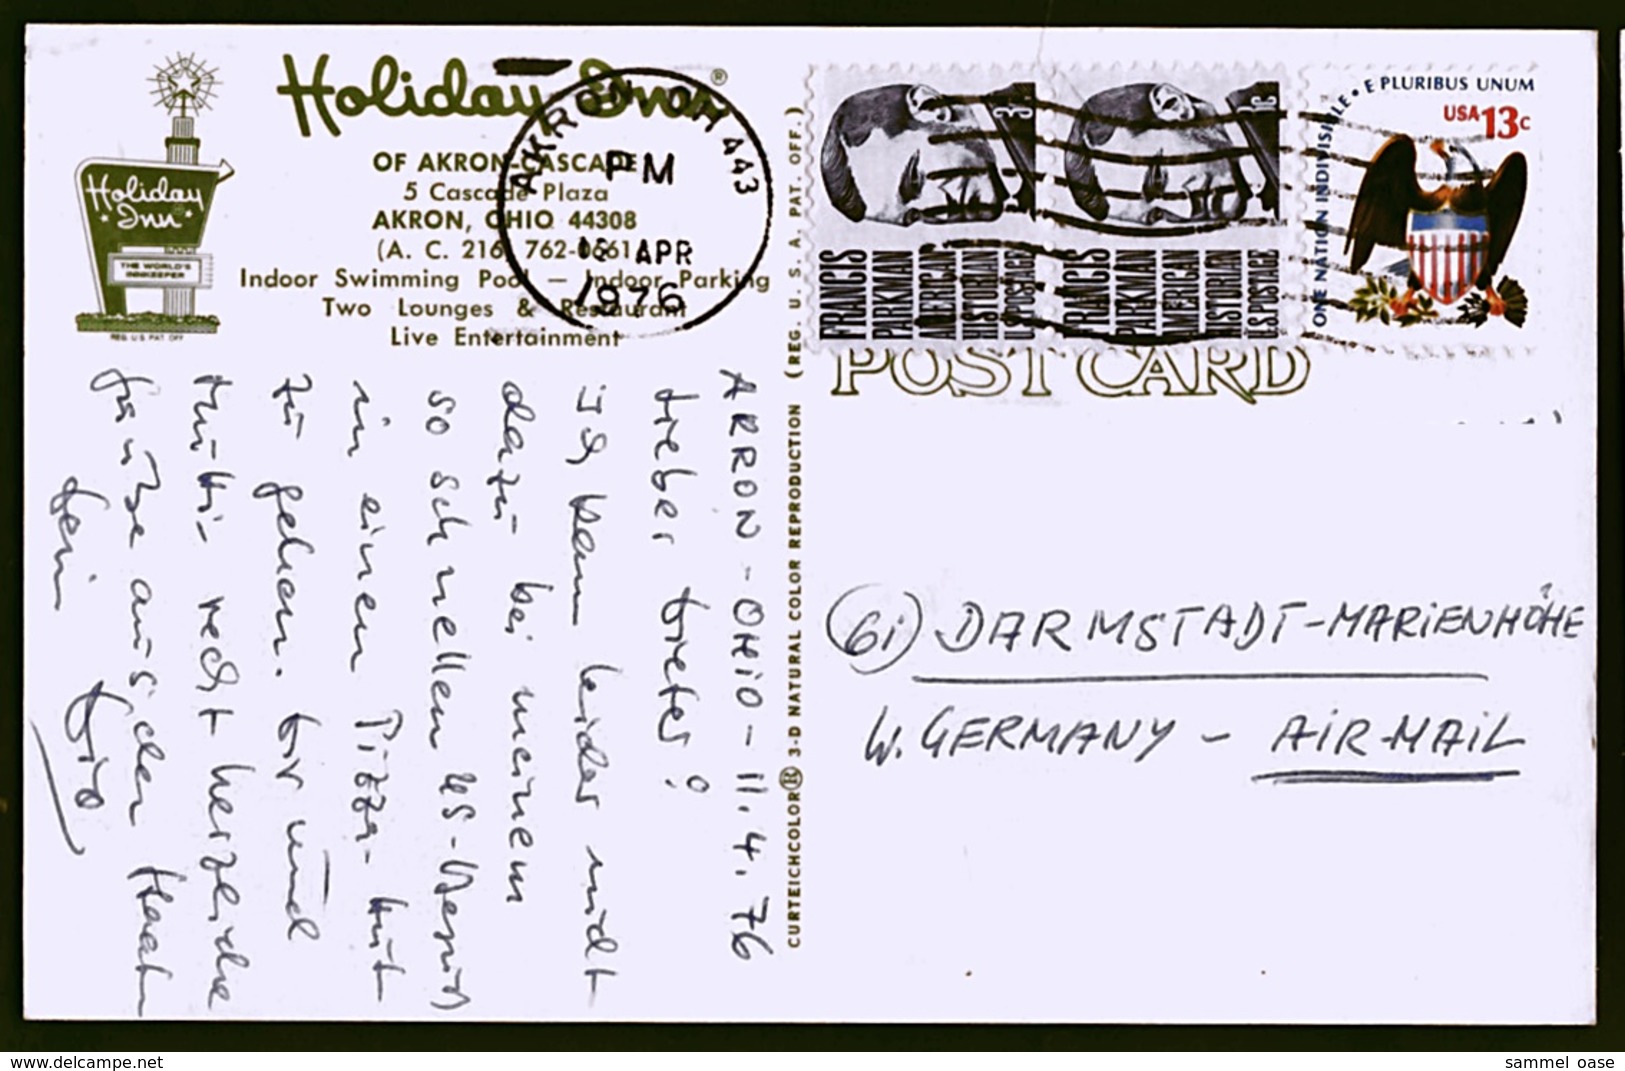 Holiday Inn®
OF AKRON-CASCADE
5 Cascade Plaza
AKRON, OHIO 44308
(A. C. 216) 762-0661
Indoor Swimming Pool — Indoor Parking
Two Lounges & Restaurant
Live Entertainment
Holiday
Inn
THE WORLD'S
INNKEEPER
REG. U.S. PAT. OFF.
AKRON OH 443
PM
APR
1976
3c
FRANCIS
PARKMAN
AMERICAN
HISTORIAN
U.S. POSTAGE
3c
FRANCIS
PARKMAN
AMERICAN
HISTORIAN
U.S. POSTAGE
ONE NATION INDIVISIBLE • E PLURIBUS UNUM
USA 13c
POST CARD
CURTEICHCOLOR® 3-D NATURAL COLOR REPRODUCTION (REG. U. S. A. PAT. OFF.)
AKRON-OHIO-11.4.76
Lieber Dieter!
Ich kam leider nicht
dazu bei meinem
so schnellen US-Besuch
in einen Pizza-Hut
zu gehen. Dir und
Mutti recht herzliche
Grüsse aus den Staaten
Dein
(61) DARMSTADT-MARIENHÖHE
W. GERMANY - AIR-MAIL
www.delcampe.net
sammel oase